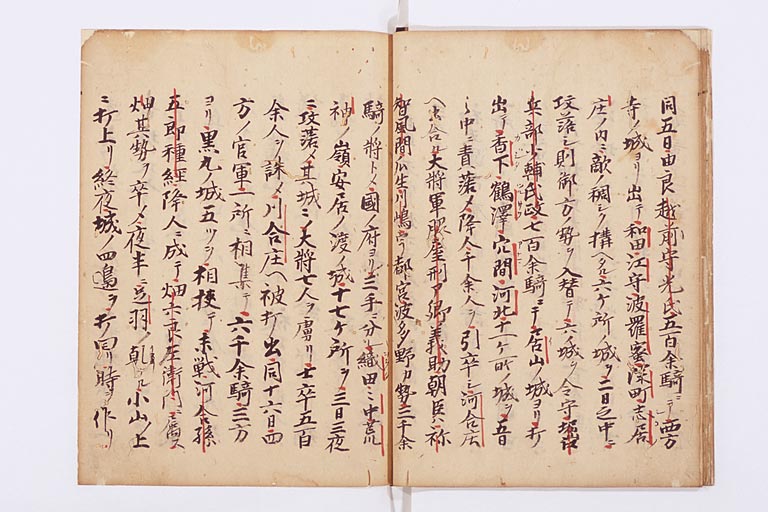 同五日由良越前守光氏五百余騎ニテ西方
寺ノ城ヨリ出テ和田江守波羅蜜深町志居
庄ノ内ニ敵稠シク構ヘタル六ケ所ノ城ヲ二日之中ニ
攻落シ則御方ノ勢ヲ入替テ六ノ城ヲ令守堀口
兵部少輔氏政七百余騎ニテ居山ノ城ヨリ打
出テ香下鶴澤穴間河北十一ケ所ノ城ヲ五日
之中ニ責落メ降人千余人ヲ引卒シ河合庄
ヘ出合大将軍脇屋刑ア卿義助朝臣ハ祢
智風間瓜生川嶋宇都宮波多野カ勢三千余
騎ノ将トメ國ノ府ヨリ三手ニ分レ織田々中荒
神ノ嶺安居ノ渡ノ城十七ケ所ヲ三日三夜
ニ攻落メ其城ニノ大将七人ヲ虜リ士卒五百
余人ヲ誅メ川合庄ヘ被打出同十六日四
方ノ官軍一所ニ相集テ六千余騎三方
ヨリ黒丸ノ城五ツヲ相挟テ未戦河合孫
五郎種經降人ニ成テ畑六良左衛門ニ属ス
畑其勢ヲ卒メ夜半ニ足羽ノ乾ナル小山ノ上
ニ打上リ終夜城ノ四邉ヲ打回リ時ヲ作リ